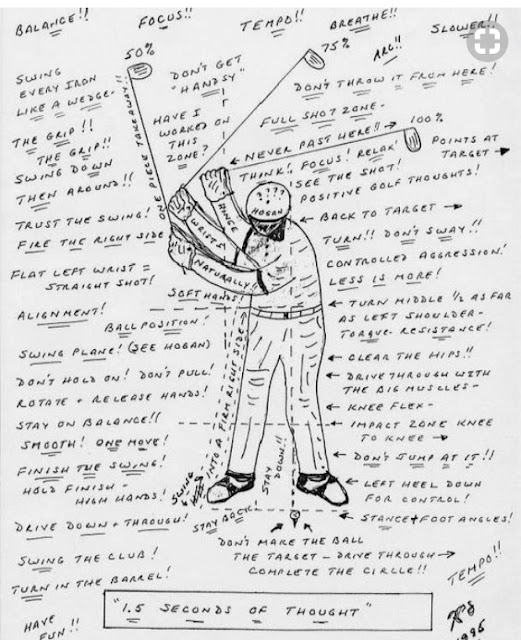 BALANCE!! FOCUS!! TEMPO!! BREATHE!! SLOWER!!
50%
75%
ARG!!
SWING
EVERY IRON
LIKE A WEDGE-
DON'T GET
"HANDSY"
DON'T THROW IT FROM HERE!
ONE PIECE TAKEAWAY!!
HAVE I
WORKED ON
THIS
ZONE?
FULL SHOT ZONE-
100%
NEVER PAST HERE!!
POINTS AT
TARGET
THE GRIP!!
THE GRIP!!
SWING DOWN
THEN AROUND!!
THINK!! FOCUS! RELAX!
SEE THE SHOT!
POSITIVE GOLF THOUGHTS!
????
HOGAN
TRUST THE SWING!
FIRE THE RIGHT SIDE
WRISTS
HINGE
NATURALLY!
BACK TO TARGET
TURN!! DON'T SWAY!!
CONTROLLED AGGRESSION!
LESS IS MORE!
FLAT LEFT WRIST =
STRAIGHT SHOT!
SOFT HANDS!
ALIGNMENT!
BALL POSITION!
TURN MIDDLE 1/2 AS FAR
AS LEFT SHOULDER-
TORQUE-RESISTANCE!
SWING PLANE! (SEE HOGAN)
CLEAR THE HIPS!!
DON'T HOLD ON! DON'T PULL!
ROTATE + RELEASE HANDS!
DRIVE THROUGH WITH
THE BIG MUSCLES-
KNEE FLEX-
STAY ON BALANCE!!
SMOOTH! ONE MOVE!
IMPACT ZONE KNEE
TO KNEE
FINISH THE SWING!
HOLD FINISH-
HIGH HANDS!
SWING
INTO A FIRM RIGHT SIDE
STAY
DOWN!!
DON'T JUMP AT IT!!
LEFT HEEL DOWN
FOR CONTROL!
DRIVE DOWN + THROUGH!
STAY BACK!
STANCE + FOOT ANGLES!
SWING THE CLUB!
TURN IN THE BARREL!
DON'T MAKE THE BALL
THE TARGET - DRIVE THROUGH
COMPLETE THE CIRCLE!!
TEMPO!!
HAVE
FUN!!
"1.5 SECONDS OF THOUGHT"